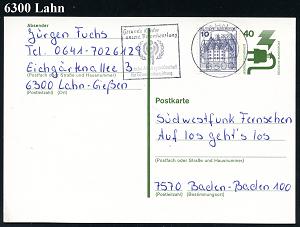 6300 Lahn
Absender
Jürgen Fuchs
Tel. 0641-7026129
Eichgärtenallee 3
(Postfach oder Straße und Hausnummer)
6300 Lahn-Gießen
(Postleitzahl) (Ort)
Gesunde Kinder
unsere Verantwortung
10
40
Postkarte
Südwestfunk Fernsehen
Auf los geht's los
(Postfach oder Straße und Hausnummer)
7570 Baden-Baden 100
(Postleitzahl) (Bestimmungsort)